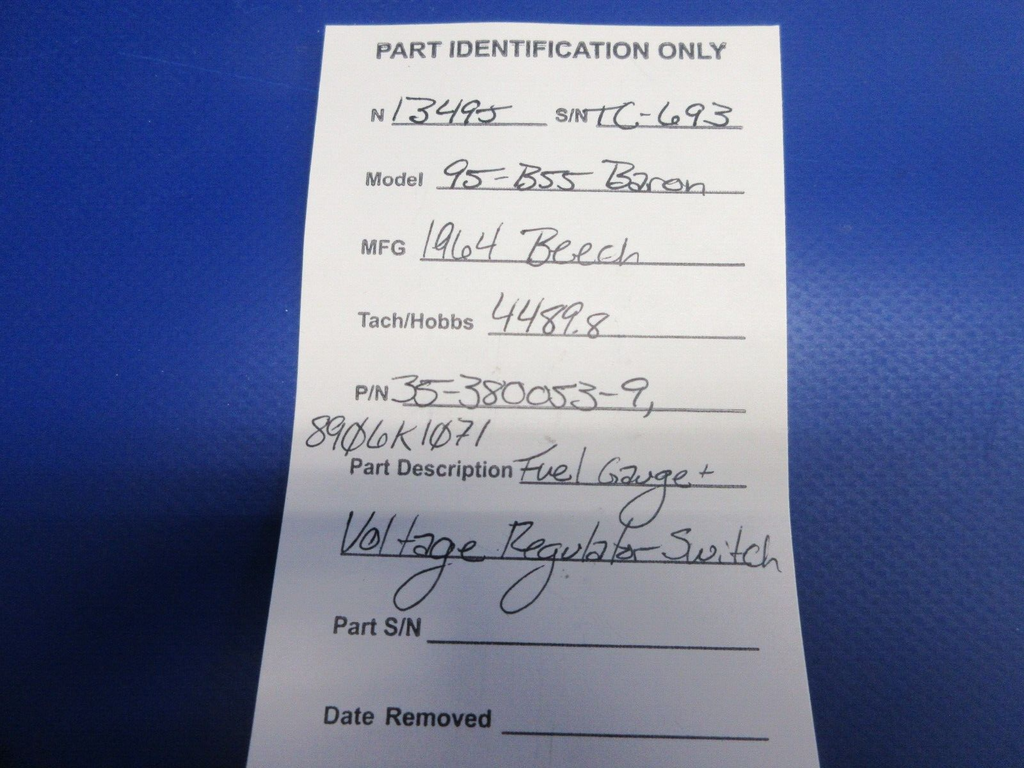 PART IDENTIFICATION ONLY
N 13495 S/N TC-693
Model 95-B55 Baron
MFG 1964 Beech
Tach/Hobbs 4489.8
P/N 35-380053-9,
8906K1071
Part Description Fuel Gauge +
Voltage Regulator Switch
Part S/N
Date Removed